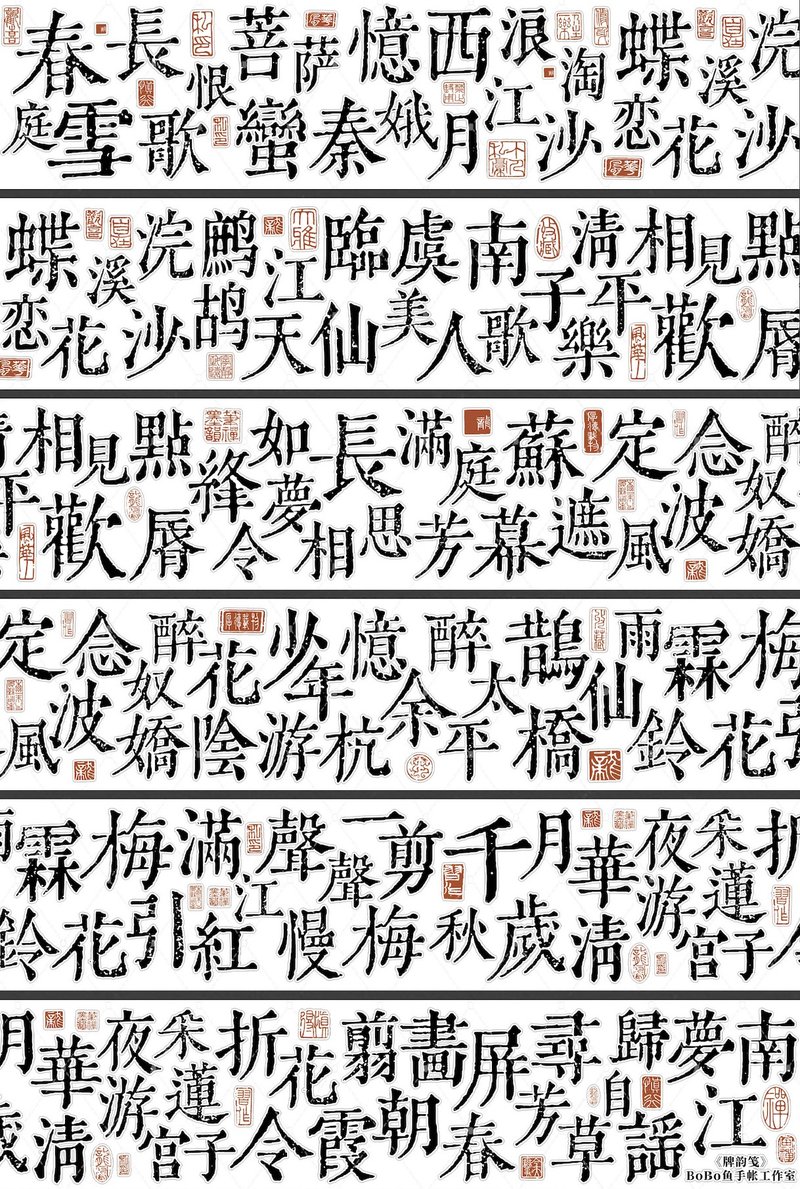 春庭雪 長恨歌 菩萨蠻 憶秦娥 西江月 浪淘沙 蝶恋花 浣溪沙
蝶恋花 浣溪沙 鹧鸪天 臨江仙 虞美人 南歌子 清平樂 相見歡 點脣
清平 相見歡 點絳脣 如夢令 長相思 滿庭芳 蘇幕遮 定風波 念奴嬌 醉
定風波 念奴嬌 醉花陰 少年游 憶余杭 醉太平 鵲橋仙 雨霖鈴 梅花引
雨霖鈴 梅花引 滿江紅 聲聲慢 一剪梅 千秋歲 月華清 夜游宮 采蓮子 折令
月華清 夜游宮 采蓮子 折花令 翦朝霞 畫屏春 尋芳草 歸自謠 夢江南
《牌韵笺》
BoBo鱼手帐工作室